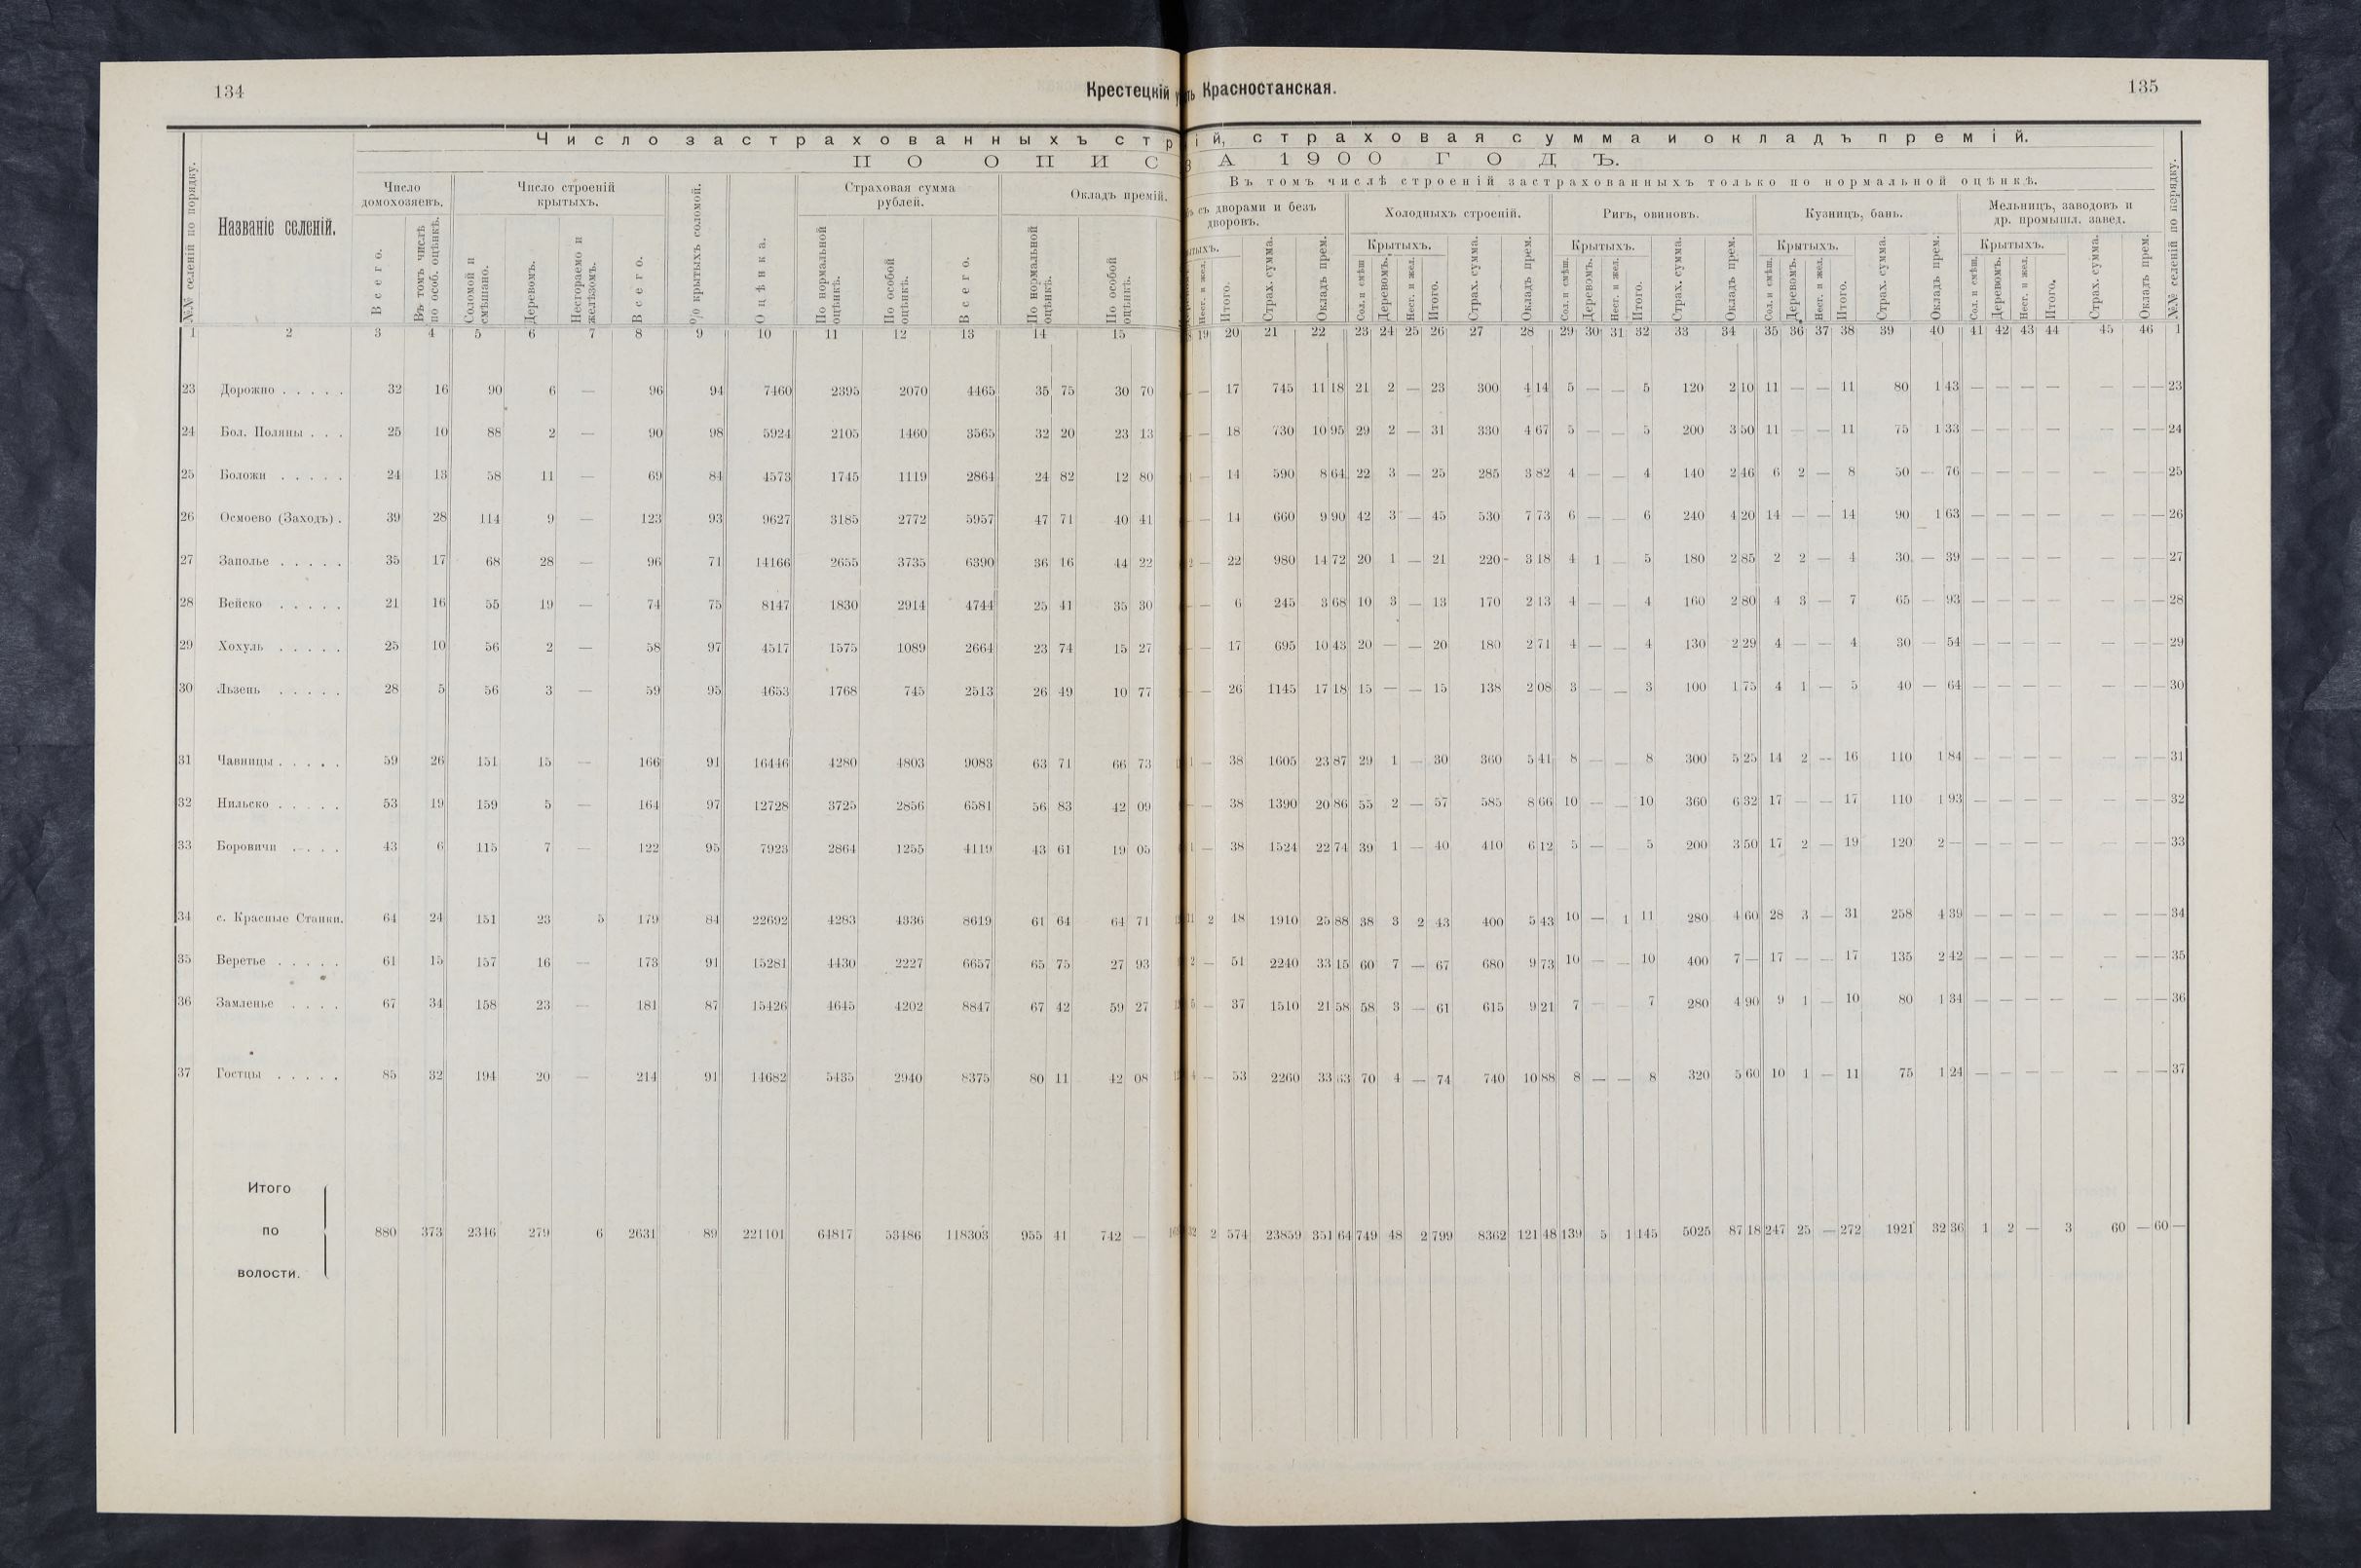 134
Крестецкій
Красностанская.
135
Число застрахованныхъ стр
ій, страховая сумма и окладъ премій.
ПО ОПИС
А 1900 ГОДЪ.
Въ томъ числѣ строеній застрахованныхъ только по нормальной оцѣнкѣ.
№№ селеній по порядку.
Названіе селеній.
Число домохозяевъ.
Всего.
Въ томъ числѣ по особ. оцѣнкѣ.
Число строеній крытыхъ.
Соломой и смѣшано.
Деревомъ.
Несгораемо и желѣзомъ.
Всего.
% крытыхъ соломой.
Оцѣнка.
Страховая сумма рублей.
По нормальной оцѣнкѣ.
По особой оцѣнкѣ.
Всего.
Окладъ премій.
По нормальной оцѣнкѣ.
По особой оцѣнкѣ.
съ дворами и безъ дворовъ.
Нест. и жел.
Итого.
Страх. сумма.
Окладъ прем.
Холодныхъ строеній.
Крытыхъ.
Сол. и смѣш.
Деревомъ.
Несг. и жел.
Итого.
Страх. сумма.
Окладъ прем.
Ригъ, овиновъ.
Крытыхъ.
Сол. и смѣш.
Деревомъ.
Несг. и жел.
Итого.
Страх. сумма.
Окладъ прем.
Кузницъ, бань.
Крытыхъ.
Сол. и смѣш.
Деревомъ.
Несг. и жел.
Итого.
Страх. сумма.
Окладъ прем.
Мельницъ, заводовъ и др. промышл. завед.
Крытыхъ.
Сол. и смѣш.
Деревомъ.
Несг. и жел.
Итого.
Страх. сумма.
Окладъ прем.
№№ селеній по порядку.
1 2 3 4 5 6 7 8 9 10 11 12 13 14 15 19 20 21 22 23 24 25 26 27 28 29 30 31 32 33 34 35 36 37 38 39 40 41 42 43 44 45 46 1
23 Дорожно . . . . . 32 16 90 6 — 96 94 7460 2395 2070 4465 35 75 30 70 — 17 745 11 18 21 2 — 23 300 4 14 5 — — 5 120 2 10 11 — — 11 80 1 43 — — — — — — — 23
24 Бол. Поляны . . . 25 10 88 2 — 90 98 5924 2105 1460 3565 32 20 23 13 — 18 730 10 95 29 2 — 31 330 4 67 5 — — 5 200 3 50 11 — — 11 75 1 33 — — — — — — — 24
25 Боложи . . . . . 24 13 58 11 — 69 84 4573 1745 1119 2864 24 82 12 80 — 14 590 8 64 22 3 — 25 285 3 82 4 — — 4 140 2 46 6 2 — 8 50 — 76 — — — — — — — 25
26 Осмоево (Заходъ) . 39 28 114 9 — 123 93 9627 3185 2772 5957 47 71 40 41 — 14 660 9 90 42 3 — 45 530 7 73 6 — — 6 240 4 20 14 — — 14 90 1 63 — — — — — — — 26
27 Заполье . . . . . 35 17 68 28 — 96 71 14166 2655 3735 6390 36 16 44 22 — 22 980 14 72 20 1 — 21 220 3 18 4 1 — 5 180 2 85 2 2 — 4 30 — 39 — — — — — — — 27
28 Вейско . . . . . 21 16 55 19 — 74 75 8147 1830 2914 4744 25 41 35 30 — 6 245 3 68 10 3 — 13 170 2 13 4 — — 4 160 2 80 4 3 — 7 65 — 93 — — — — — — — 28
29 Хохуль . . . . . 25 10 56 2 — 58 97 4517 1575 1089 2664 23 74 15 27 — 17 695 10 43 20 — — 20 180 2 71 4 — — 4 130 2 29 4 — — 4 30 — 54 — — — — — — — 29
30 Льзень . . . . . 28 5 56 3 — 59 95 4653 1768 745 2513 26 49 10 77 — 26 1145 17 18 15 — — 15 138 2 08 3 — — 3 100 1 75 4 1 — 5 40 — 64 — — — — — — — 30
31 Чавницы . . . . . 59 26 151 15 — 166 91 16446 4280 4803 9083 63 71 66 73 — 38 1605 23 87 29 1 — 30 360 5 41 8 — — 8 300 5 25 14 2 — 16 110 1 84 — — — — — — — 31
32 Нильско . . . . . 53 19 159 5 — 164 97 12728 3725 2856 6581 56 83 42 09 — 38 1390 20 86 55 2 — 57 585 8 66 10 — — 10 360 6 32 17 — — 17 110 1 93 — — — — — — — 32
33 Боровичи . . . . 43 6 115 7 — 122 95 7923 2864 1255 4119 43 61 19 05 — 38 1524 22 74 39 1 — 40 410 6 12 5 — 5 200 3 50 17 2 — 19 120 2 — — — — — — — — 33
34 с. Красные Станки. 64 24 151 23 5 179 84 22692 4283 4336 8619 61 64 64 71 11 2 48 1910 25 88 38 3 2 43 400 5 43 10 — 1 11 280 4 60 28 3 — 31 258 4 39 — — — — — — — 34
35 Веретье . . . . . 61 15 157 16 — 173 91 15281 4430 2227 6657 65 75 27 93 2 — 51 2240 33 15 60 7 — 67 680 9 73 10 — — 10 400 7 — 17 — — 17 135 2 42 — — — — — — — 35
36 Замленье . . . . 67 34 158 23 — 181 87 15426 4645 4202 8847 67 42 59 27 5 — 37 1510 21 58 58 3 — 61 615 9 21 7 — — 7 280 4 90 9 1 — 10 80 1 34 — — — — — — — 36
37 Гостцы . . . . . 85 32 194 20 — 214 91 14682 5435 2940 8375 80 11 42 08 4 — 53 2260 33 63 70 4 — 74 740 10 88 8 — — 8 320 5 60 10 1 — 11 75 1 24 — — — — — — — 37
Итого по волости. 880 373 2346 279 6 2631 89 221101 64817 53486 118303 955 41 742 — 2 574 23859 351 64 749 48 2 799 8362 121 48 139 5 1 145 5025 87 18 247 25 — 272 1921 32 36 1 2 — 3 60 — 60 —